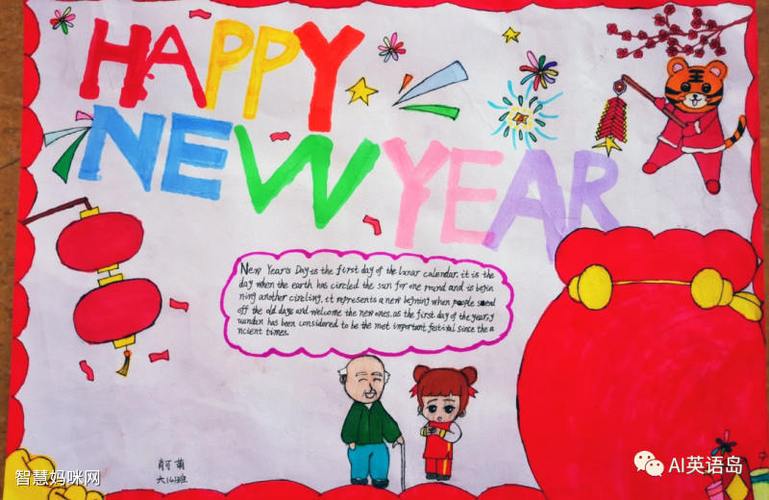 HAPPY
NEW YEAR
New Year's Day is the first day of the lunar calendar. it is the
day when the earth has circled the sun for one round and is begin
ning another circling, it represents a new begining when people send
off the old days and welcome the new ones. as the first day of the year, y
uandan has been considered to be the most important festival since the a
ncient times.
六(4)班
智慧妈咪网
AI英语岛